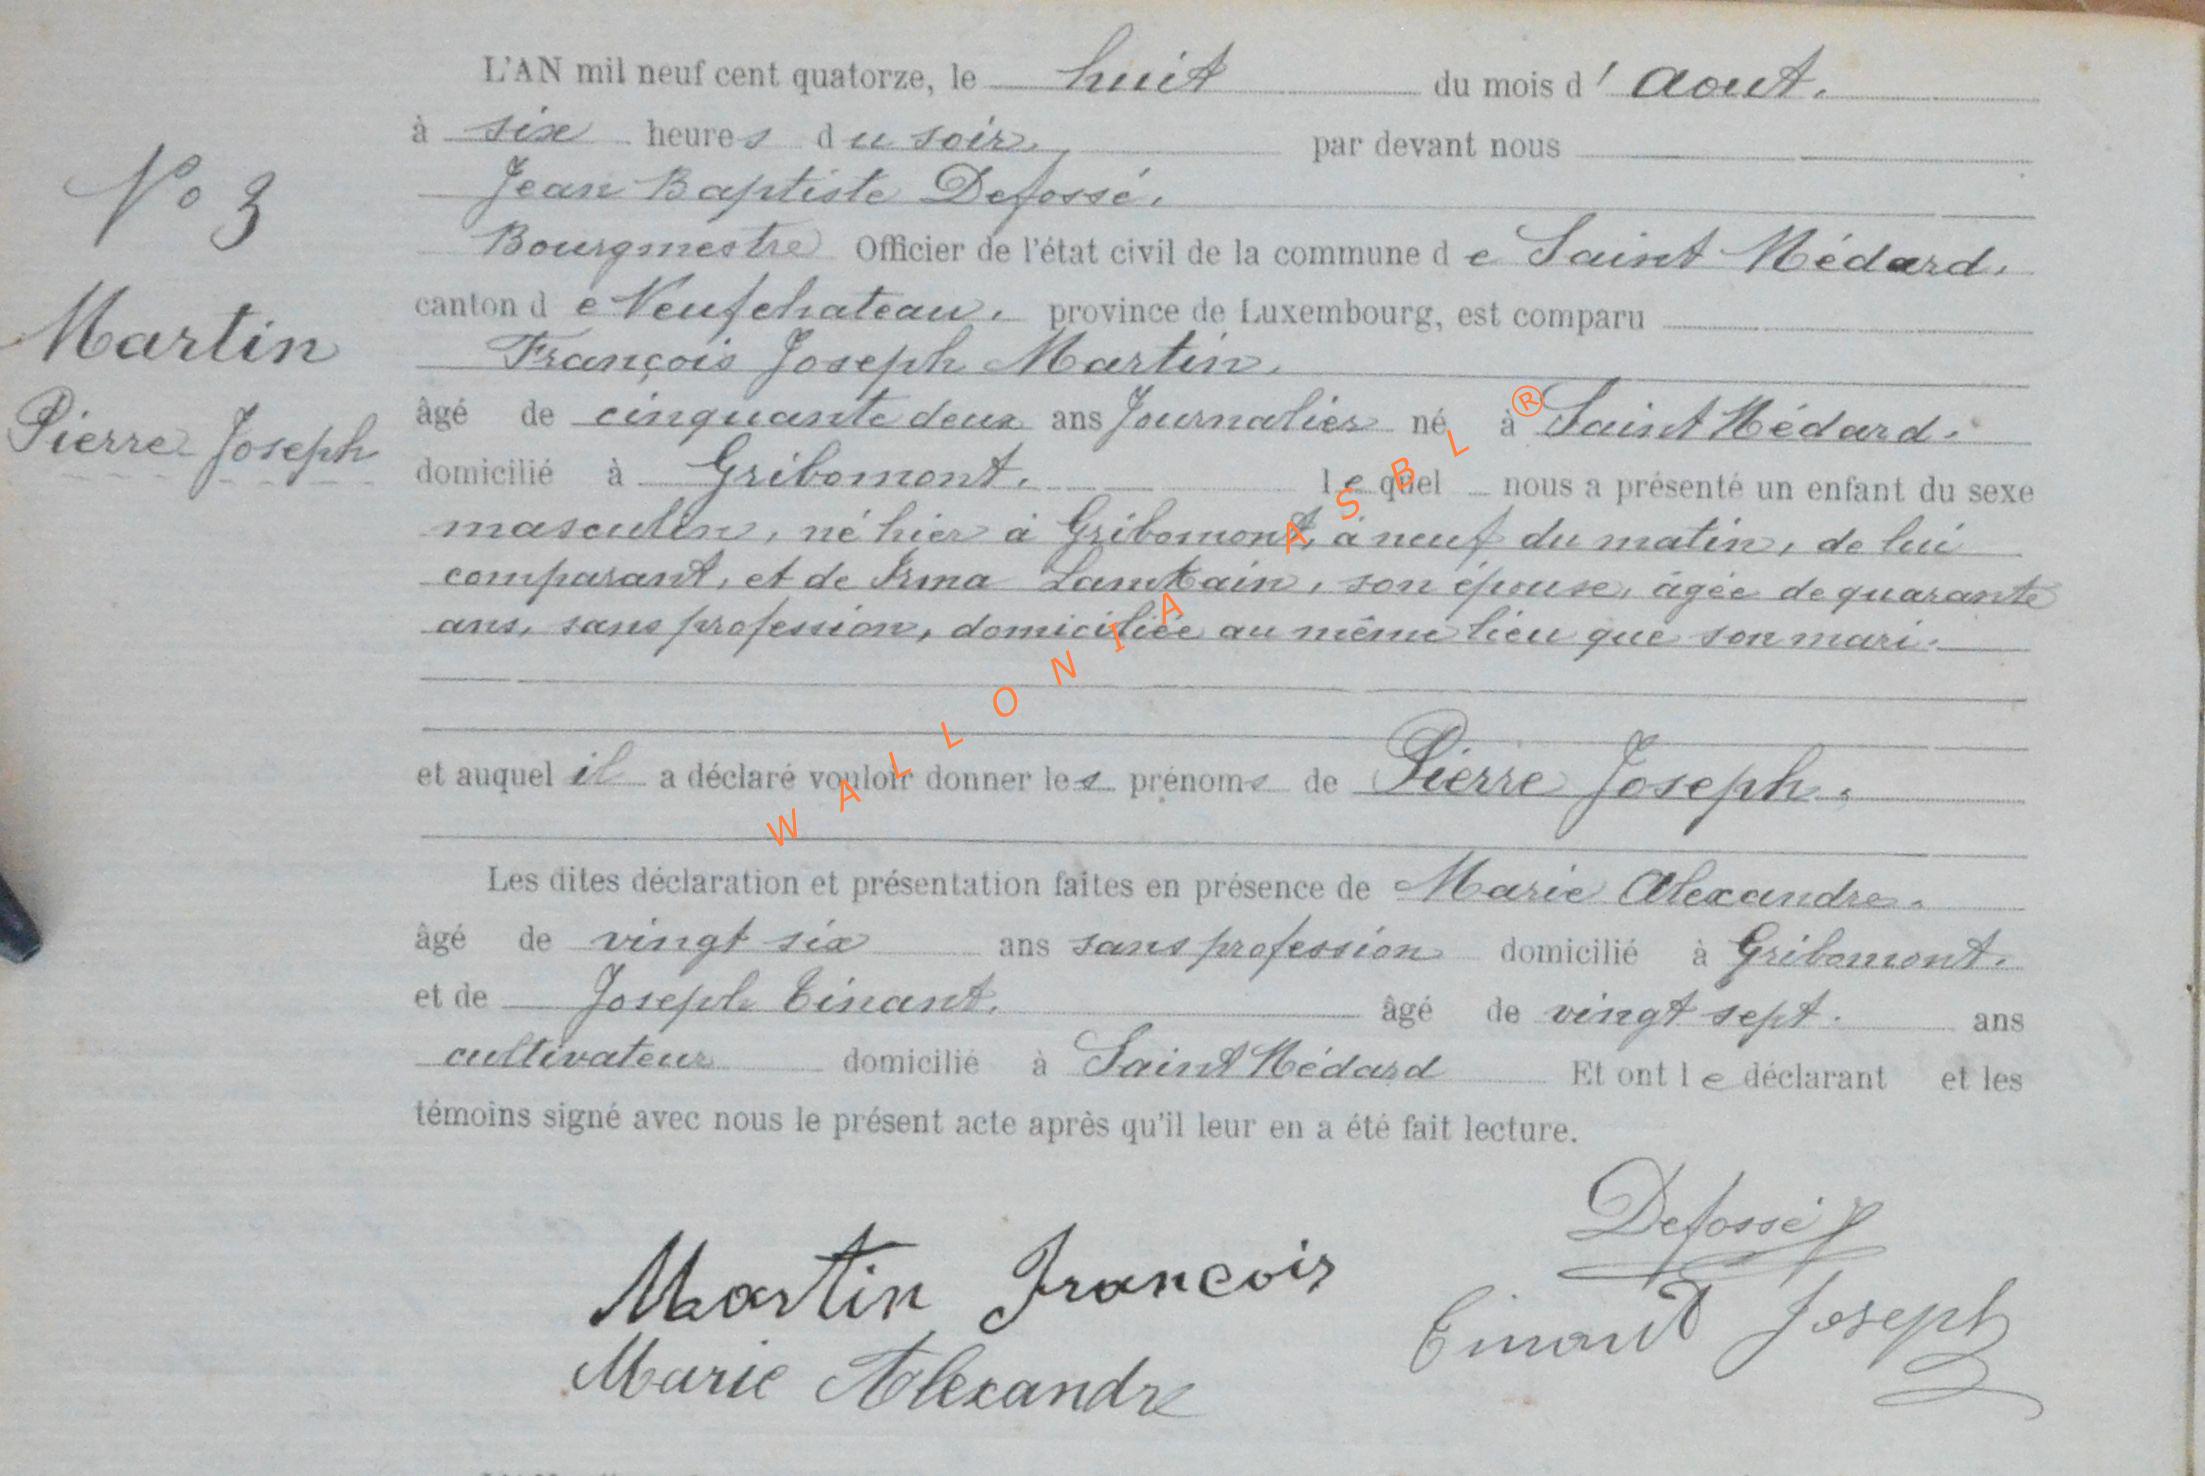 L'AN mil neuf cent quatorze, le huit du mois d' aout.
à six heures du soir, par devant nous
Jean Baptiste Defossé,
N° 3
Bourgmestre Officier de l'état civil de la commune de Saint Médard,
canton de Neufchateau, province de Luxembourg, est comparu
Martin
François Joseph Martin,
Pierre Joseph
âgé de cinquante deux ans Journalier né à Saint Médard.
domicilié à Gribomont, lequel nous a présenté un enfant du sexe
masculin, né hier à Gribomont, à neuf du matin, de lui
comparant, et de Irma Lamtain, son épouse, âgée de quarante
ans, sans profession, domiciliée au même lieu que son mari.
et auquel il a déclaré vouloir donner les prénoms de Pierre Joseph.
Les dites déclaration et présentation faites en présence de Marie Alexandre.
âgé de vingt six ans sans profession domicilié à Gribomont.
et de Joseph Tinant, âgé de vingt sept. ans
cultivateur domicilié à Saint Médard Et ont le déclarant et les
témoins signé avec nous le présent acte après qu'il leur en a été fait lecture.
Defossé
Martin Francois
Tinant Joseph
Marie Alexandre
WALLONIA ASBL ®